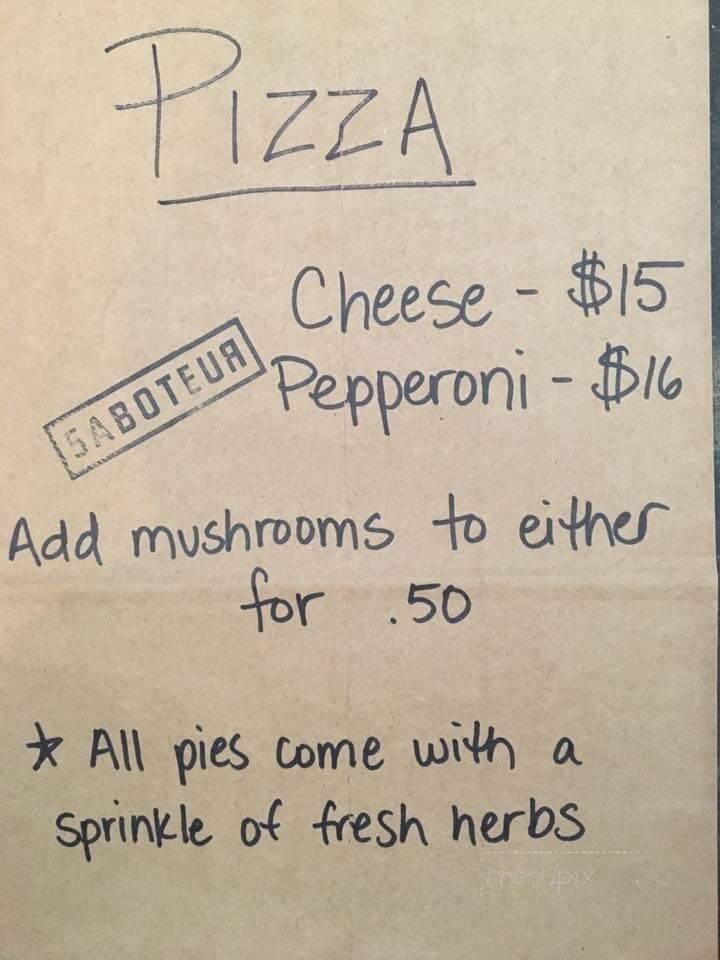 PIZZA
Cheese - $15
SABOTEUR
Pepperoni - $16
Add mushrooms to either
for .50
★ All pies come with a
sprinkle of fresh herbs
menupix